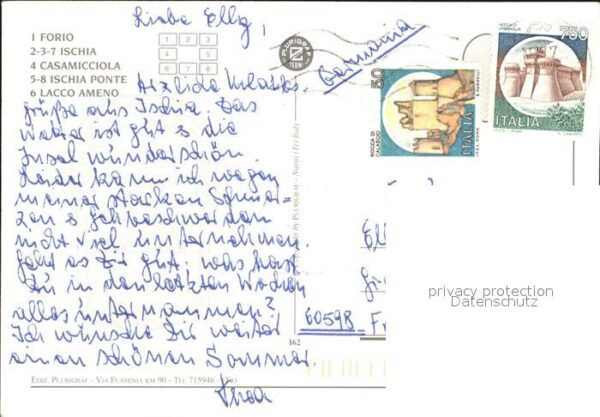 Liebe Elly,
1 FORIO
2-3-7 ISCHIA
4 CASAMICCIOLA
5-8 ISCHIA PONTE
6 LACCO AMENO
1 2 3
4 5
6 7 8
PLURIGRAF
TERNI
Germania
Herzliche
grüße aus Ischia. Das
Wetter ist gut & die
Insel wunderschön.
Leider kann ich wegen
meiner starken Schmer-
zen & Gehbeschwerden
nicht viel unternehmen.
geht es Dir gut. Was hast
Du in den letzten Wochen
alles unternommen?
Ich wünsche Dir weiter
einen schönen Sommer.
ROCCA DI
CALASCIO
50
ITALIA
750
ITALIA
by PLURIGRAF - Narni / Tr / Italy
60598 - F
privacy protection
Datenschutz
162
EDIZ. PLURIGRAF - VIA FLAMINIA KM 90 - TEL 715946